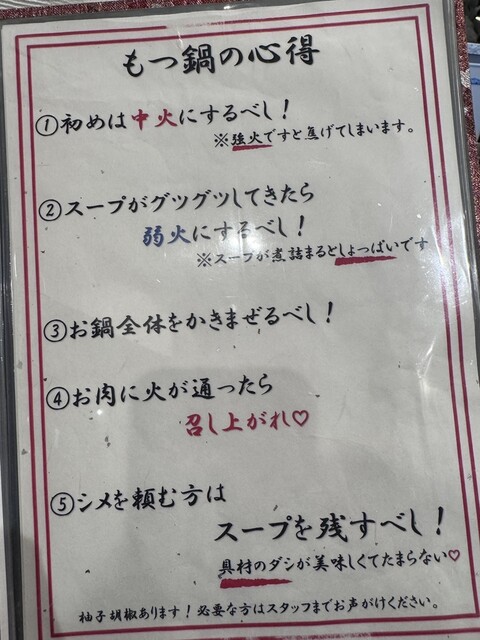 もつ鍋の心得
①初めは中火にするべし！
※強火ですと焦げてしまいます。
②スープがグツグツしてきたら
弱火にするべし！
※スープが煮詰まるとしょっぱいです
③お鍋全体をかきまぜるべし！
④お肉に火が通ったら
召し上がれ♡
⑤シメを頼む方は
スープを残すべし！
具材のダシが美味しくてたまらない♡
柚子胡椒あります！必要な方はスタッフまでお声がけください。